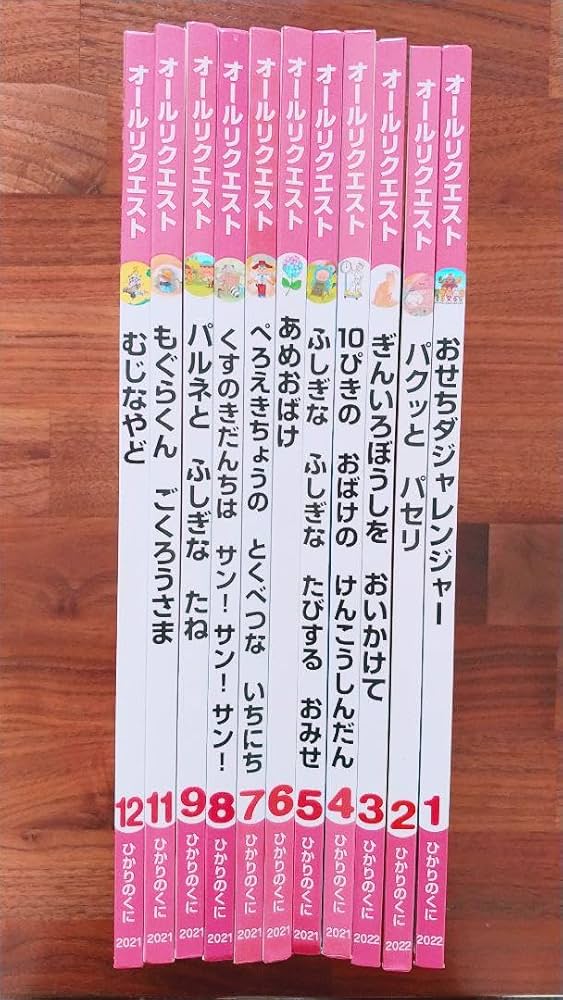 オールリクエスト
おせちダジャレンジャー
1
ひかりのくに
2022
オールリクエスト
パクッと パセリ
2
ひかりのくに
2022
オールリクエスト
ぎんいろぼうしを おいかけて
3
ひかりのくに
2022
オールリクエスト
10ぴきの おばけの けんこうしんだん
4
ひかりのくに
2021
オールリクエスト
ふしぎな ふしぎな たびする おみせ
5
ひかりのくに
2021
オールリクエスト
あめおばけ
6
ひかりのくに
2021
オールリクエスト
ぺろえきちょうの とくべつな いちにち
7
ひかりのくに
2021
オールリクエスト
くすのきだんちは サン!サン!サン!
8
ひかりのくに
2021
オールリクエスト
パルネと ふしぎな たね
9
ひかりのくに
2021
オールリクエスト
もぐらくん ごくろうさま
11
ひかりのくに
2021
オールリクエスト
むじなやど
12
ひかりのくに
2021